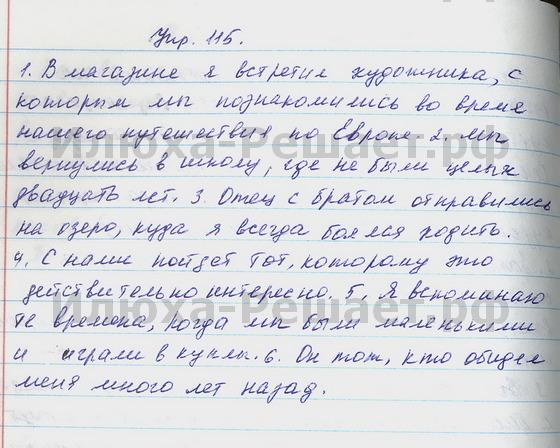 Упр. 115.
1. В магазине я встретил художника, с
которым мы познакомились во время
нашего путешествия по Европе. 2. Мы
вернулись в школу, где не были целых
двадцать лет. 3. Отец с братом отправились
на озеро, куда я всегда боялся ходить.
4. С нами пойдет тот, которому это
действительно интересно. 5. Я вспоминаю
те времена, когда мы были маленькими
и играли в куклы. 6. Он тот, кто обидел
меня много лет назад.
Илюха-Решает.рф
Илюха-Решает.рф
Илюха-Решает.рф